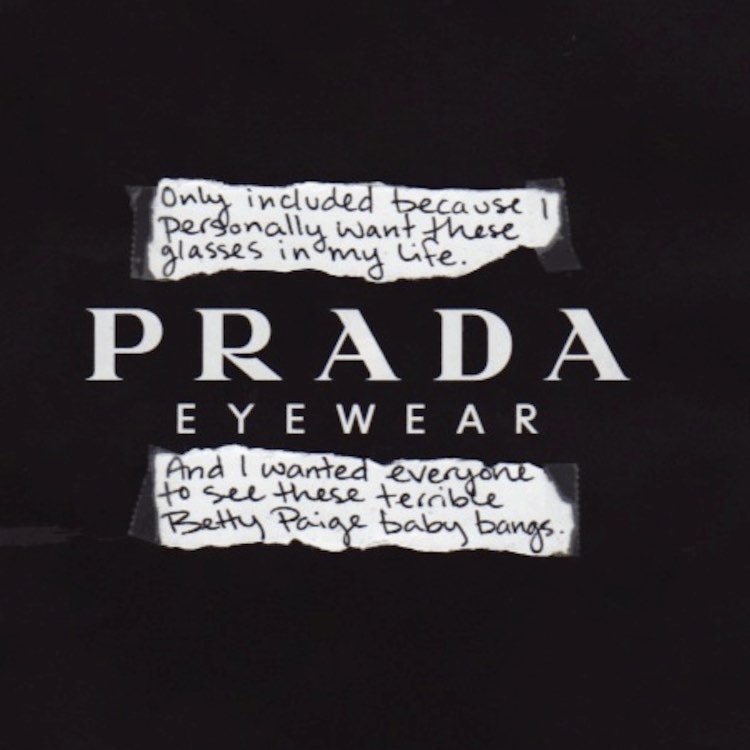 Only included because I
personally want these
glasses in my life.
PRADA
EYEWEAR
And I wanted everyone
to see these terrible
Betty Paige baby bangs.